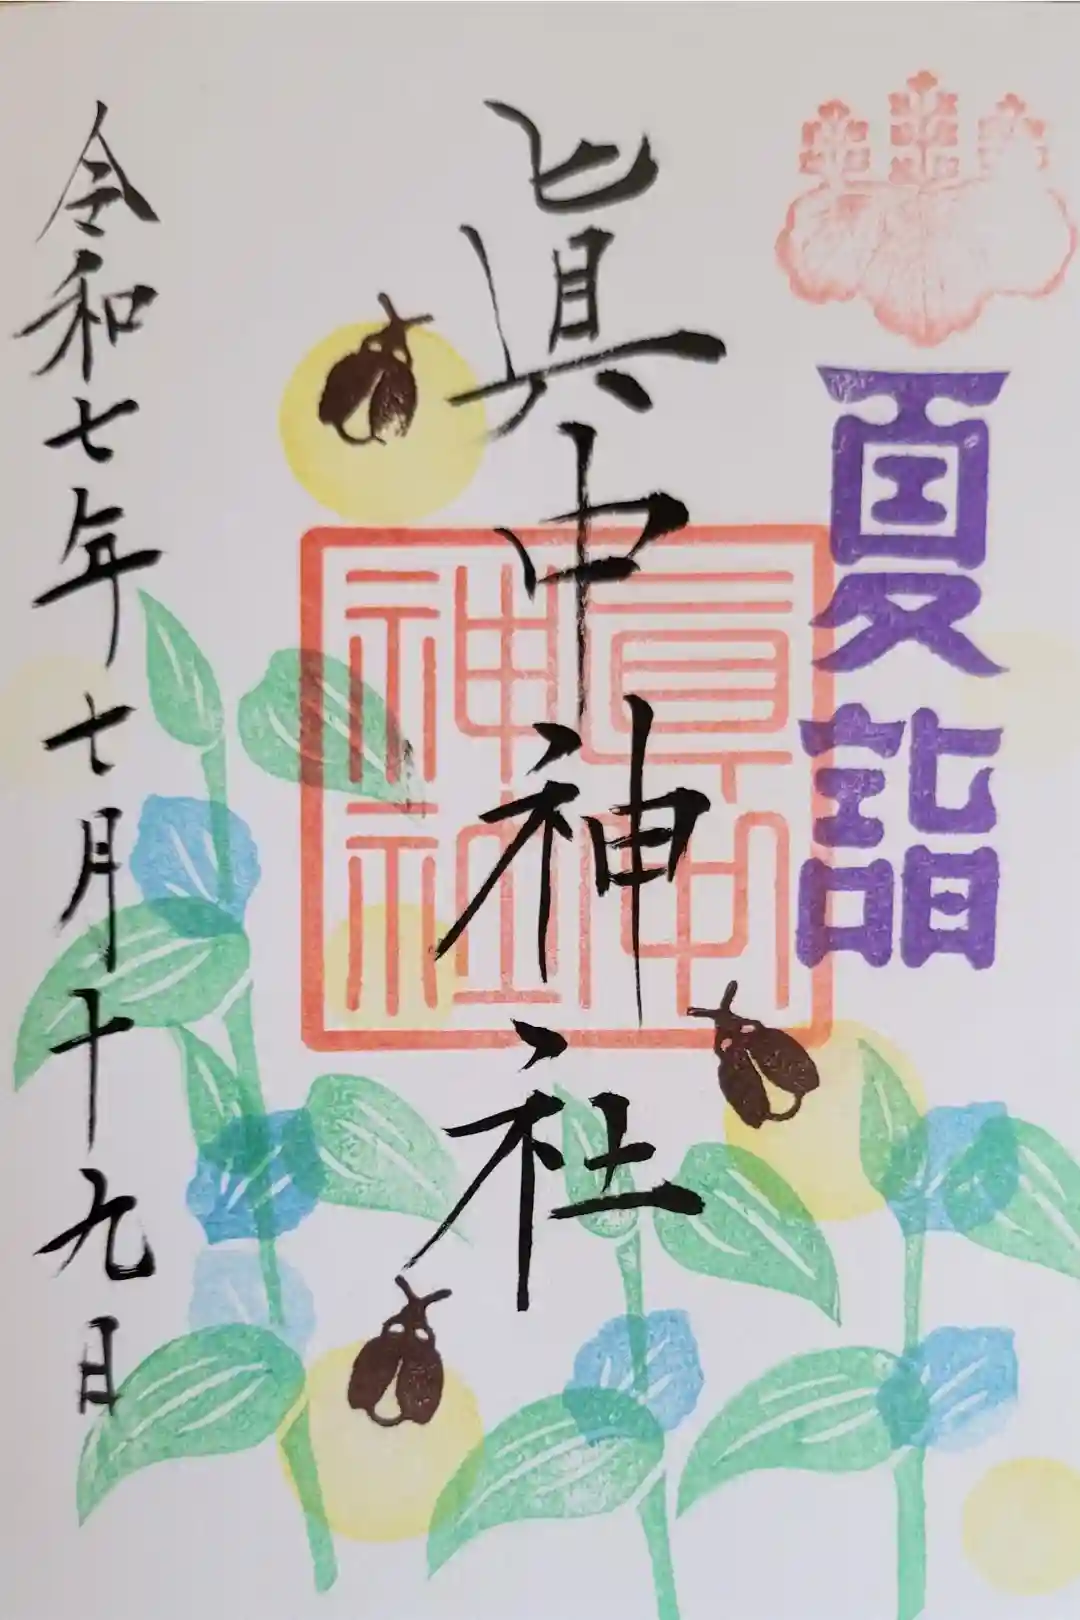 夏詣
眞中神社
眞中
神社
令和七年七月十九日